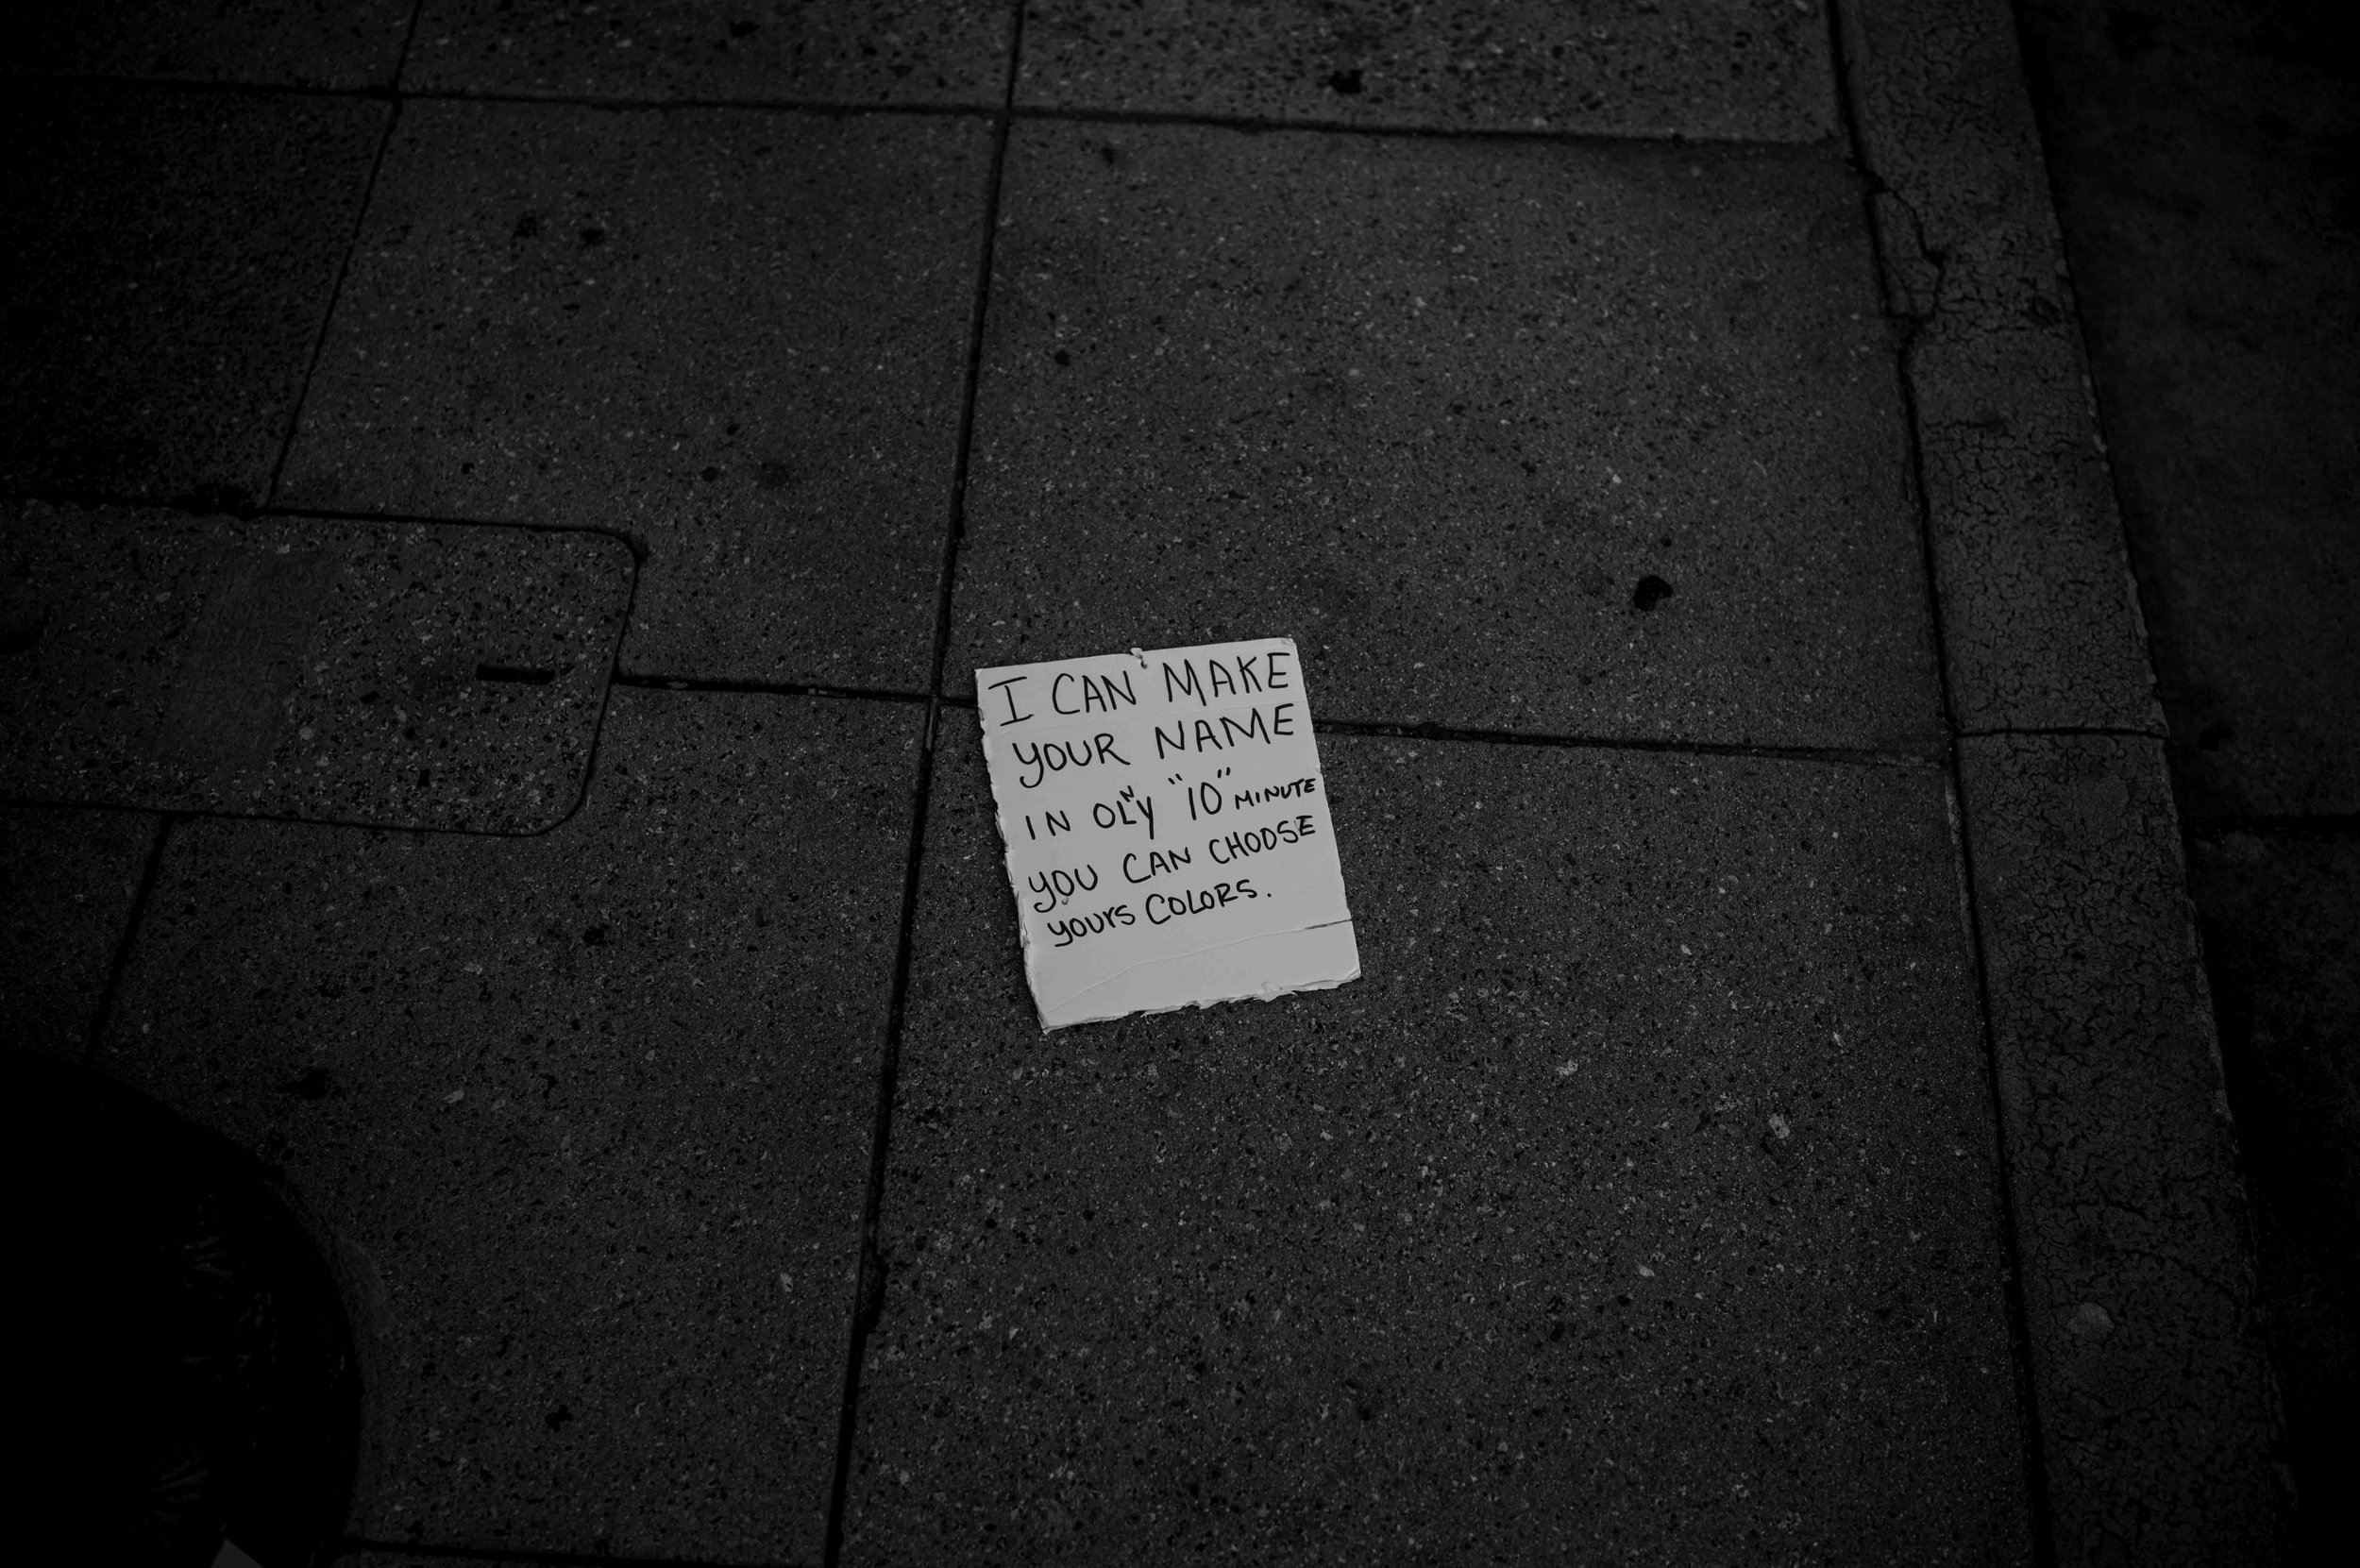 I CAN MAKE
YOUR NAME
IN OLNY "10" MINUTE
YOU CAN CHOOSE
YOURS COLORS.